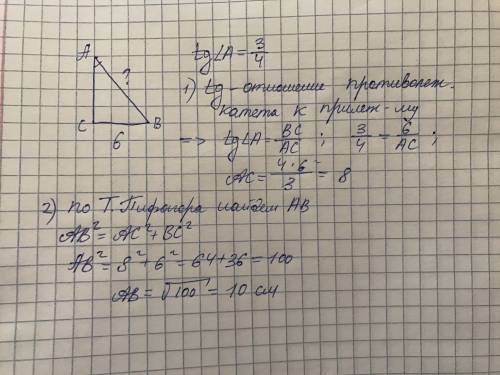 A
?
C
B
6
tg∠A = 3/4
1) tg - отношение противолеж.
катета к прилеж-му
=> tg∠A = BC/AC ; 3/4 = 6/AC ;
AC = 4·6/3 = 8
2) по Т. Пифагора найдем AB
AB² = AC² + BC²
AB² = 8² + 6² = 64 + 36 = 100
AB = √100 = 10 см